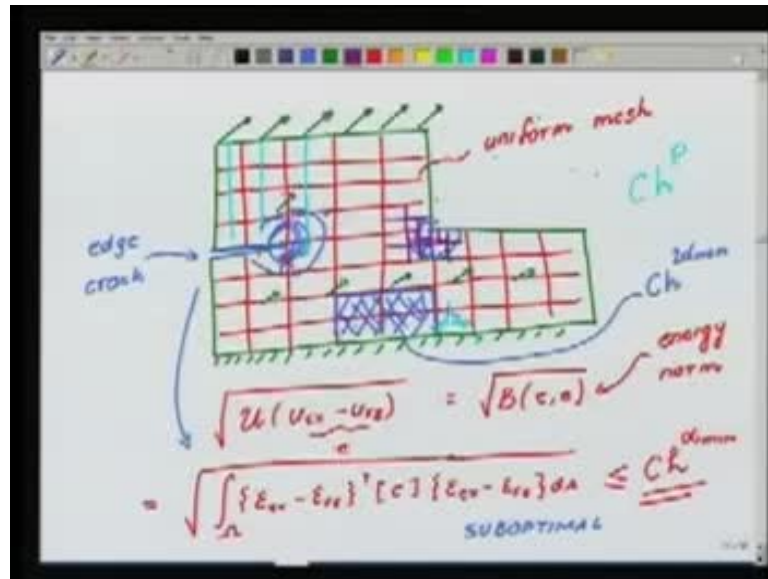 uniform mesh
Ch^p
edge
crack
Ch^2αmin
h
energy
norm
√U(u_ex - u_FE) = √B(e,e)
e
= √∫_Ω {ε_ex - ε_FE}^T [C] {ε_ex - ε_FE} dA ≤ Ch^αmin
SUBOPTIMAL